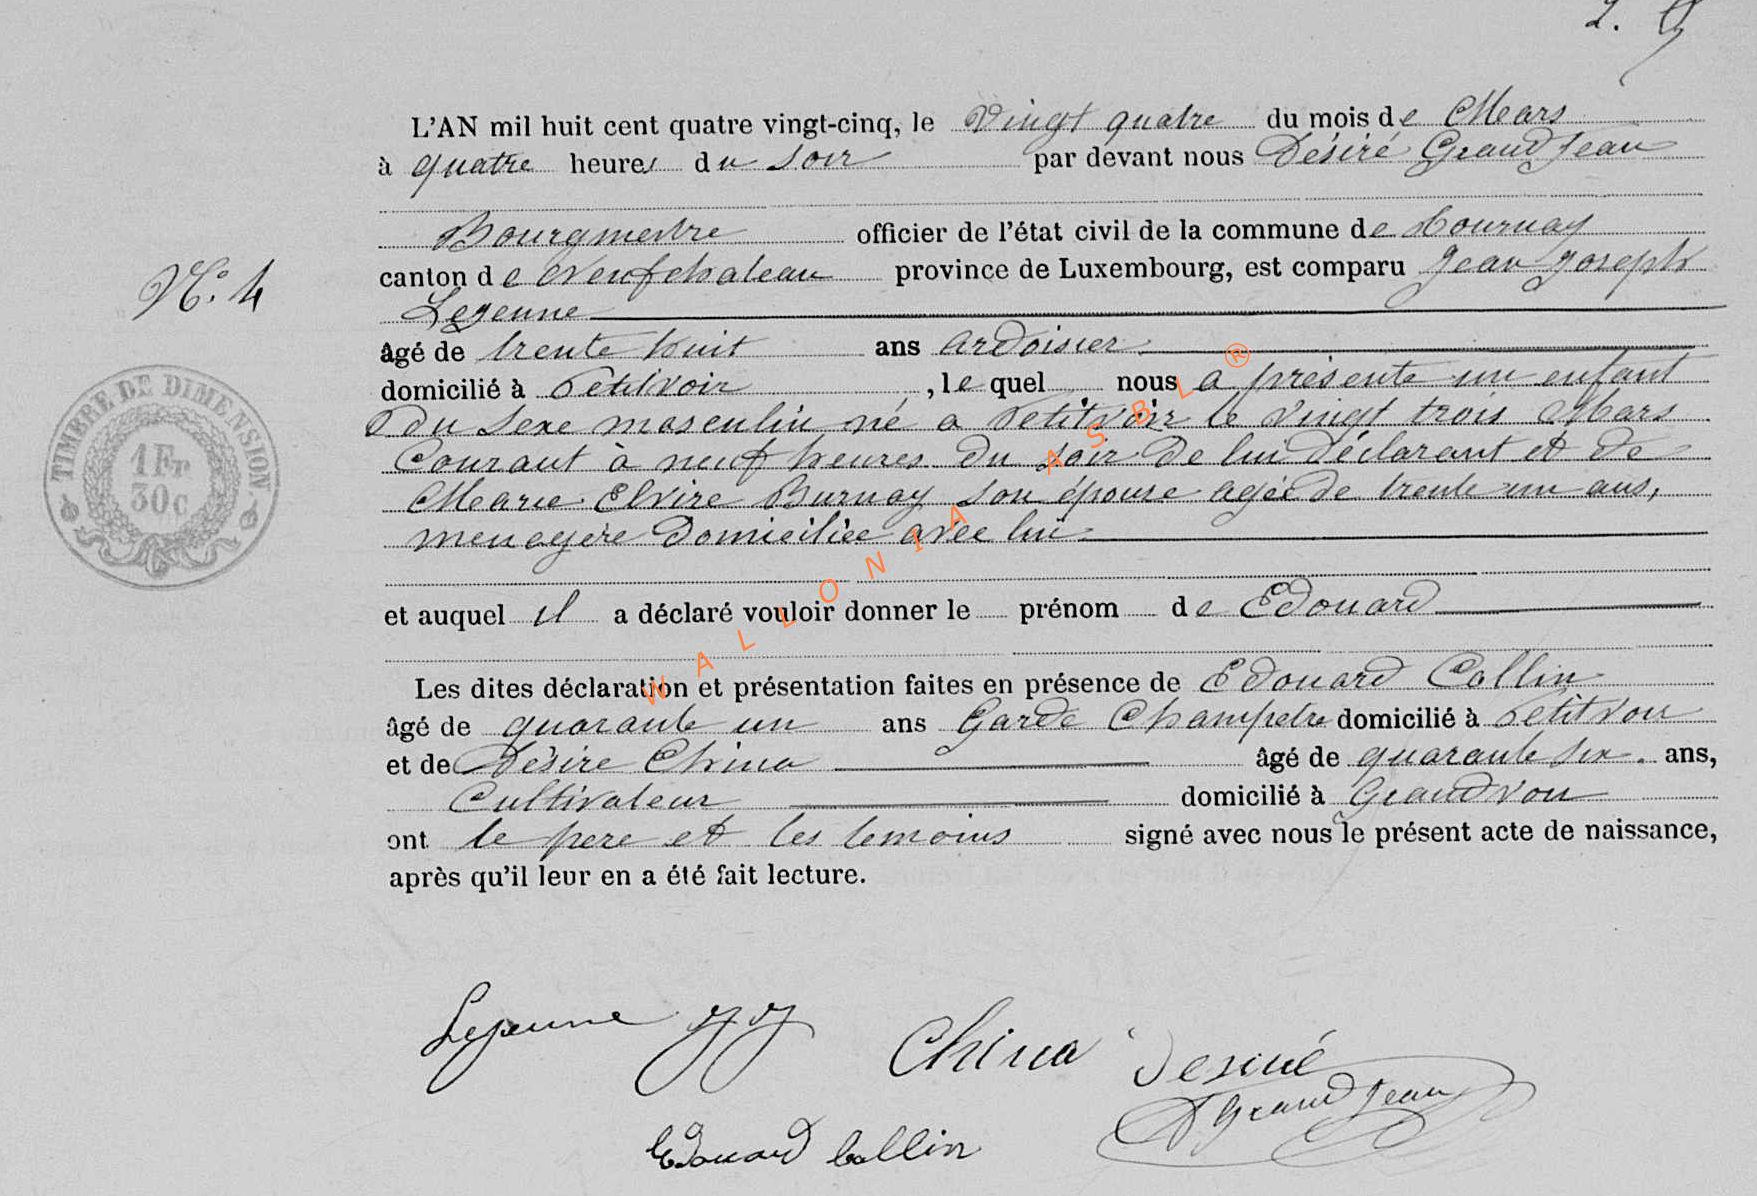 2.
L'AN mil huit cent quatre vingt-cinq, le Vingt quatre du mois de Mars
à quatre heures du soir par devant nous Désiré GrandJean
Bourgmestre officier de l'état civil de la commune de Tournay
canton de Neufchateau province de Luxembourg, est comparu Jean Joseph
Lejeune
N°. 4
âgé de trente huit ans ardoisier
domicilié à Petitvoir, le quel nous a présenté un enfant
du sexe masculin né a Petitvoir le vingt trois Mars
Courant à neuf heures du soir de lui déclarant et de
Marie Elvire Burnay son épouse agée de trente un ans,
menagère domiciliée avec lui
et auquel il a déclaré vouloir donner le prénom de Edouard
Les dites déclaration et présentation faites en présence de Edouard Collin
âgé de quarante un ans Garde Champetre domicilié à Petitvoir
et de Désiré China âgé de quarante six ans,
Cultivateur domicilié à Grandvoir
ont le pere et les temoins signé avec nous le présent acte de naissance,
après qu'il leur en a été fait lecture.
TIMBRE DE DIMENSION
1 Fr
30c
WALLONIA ASBL ®
Lejeune JJ
China Desiré
D GrandJean
Edouard Collin